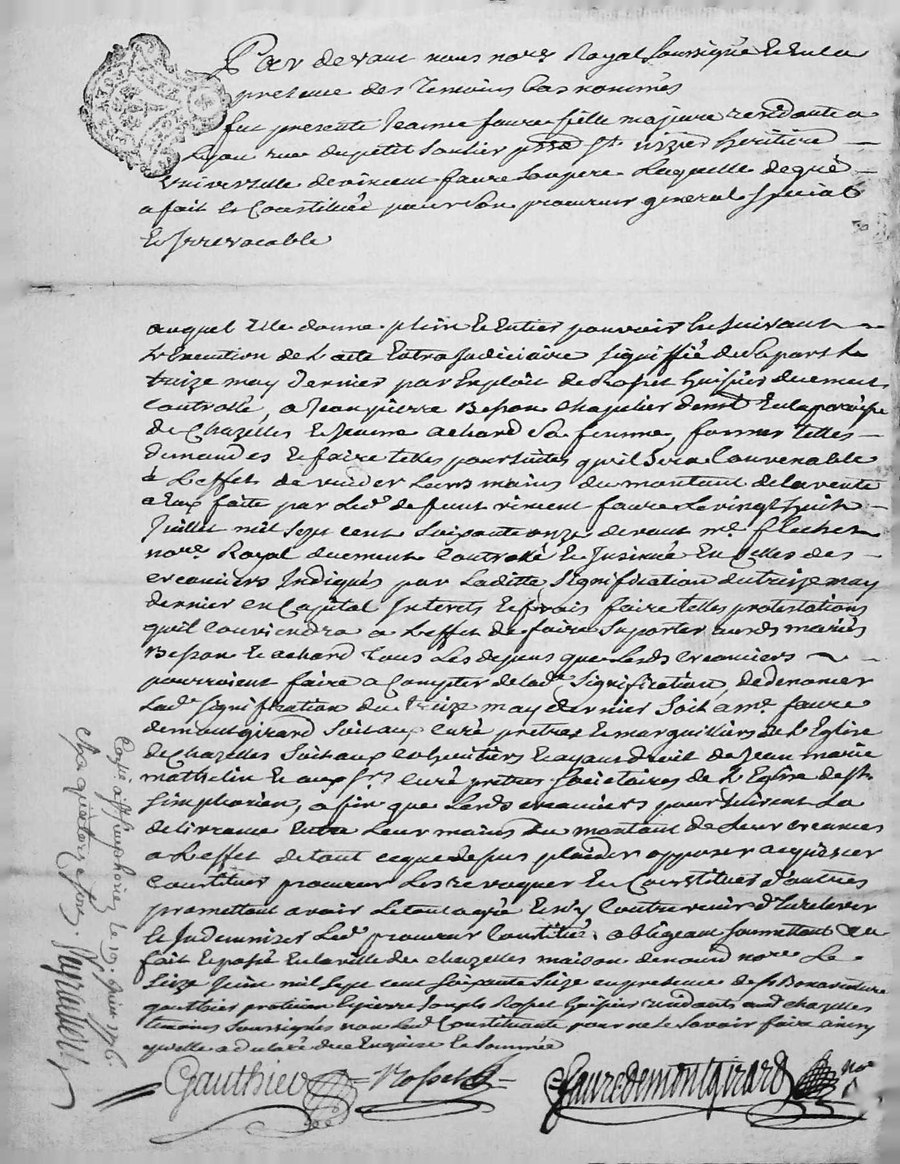 Par devant nous nore Royal soussigné et en la
presence des temoins bas nommés
fut presente Jeanne faure fille majeure residante a
Lyon rue du petit soulier psse St nizier heritiere
universelle de vincent faure son pere Laquelle de gré
a fait et Constitué pour son procureur general special
et Irrevocable
auquel Elle donne plein et Entier pouvoir En suivant
L'Execution de L'acte Extrajudiciaire signiffié de sa part Le
treize may dernier par Exploit de Rospit huissier duement
Controllé, a Jean pierre Besson chapelier demt En la paroisse
de Chazelles et Jeanne achard sa femme, former telles
demandes et faire telles poursuites qu'il sera Convenable
à L'effet de vuider Leurs mains du montant de la vente
a Eux faite par Led. defunt vincent faure Le vingt huit
Juillet mil sept cent soixante onze devant me. flechet
nore Royal duement Controllé et Insinué En Celles des
creanciers Indiqués par Laditte signification du treize may
dernier en Capital Interets et frais faire telles protestations
qu'il Conviendra a L'effet de faire suporter auxds mariés
Besson et achard tous Les depens que Lesds creanciers
pourroient faire a Compter de lade signification, de denoncer
Lade signification du treize may dernier soit a me. faure
demontgirard soit aux Curé pretres et marguilliers de L'Eglise
de Chazelles soit aux Coheritiers et ayans droit de Jean marie
mathelin et aux srs Curé pretres societaires de L'Eglise de st
simphorien, afin que Lesds creanciers poursuivent La
delivrance Entre Leurs mains du montant de Leur creances
a L'effet de tout ce que dessus plaider opposer acquiescer
Constituer procureur Les revoquer En Constituer d'autres
promettant avoir Le tout agréé Et n'y Contrevenir d'En relever
et Indemniser Led. procureur Constitué, obligeant soumettant
fait et passé En la ville de chazelles maison de nousd nore Le
seize Juin mil sept cent soixante seize en presence de sr Bonaventure
gauthier praticien et pierre Joseph Rospit huissier residants aud chazelles
temoins soussignés non Lad. Constituante pour ne Le savoir faire ainsy
qu'elle a declaré duement Enquise et sommée
Gauthier Rospit fauredemontgirard nore
Coné a st simphorien le 19. Juin 1776.